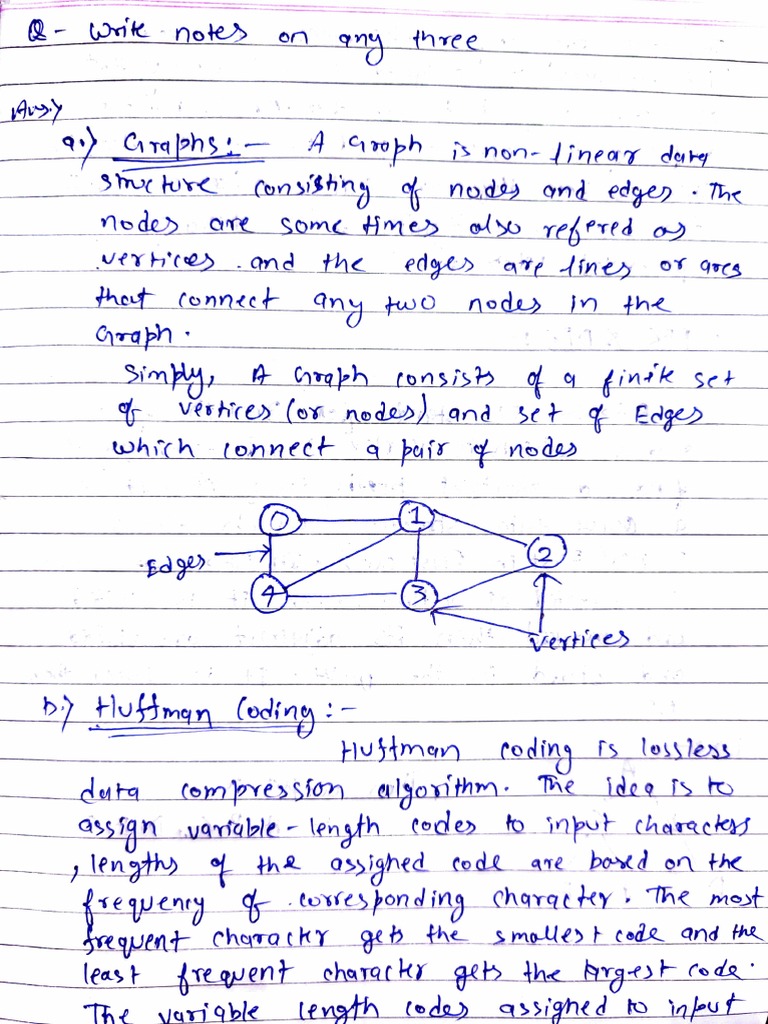 Q- Write notes on any three
Ans:)
a.) Graphs:- A Graph is non-linear data
structure consisting of nodes and edges. The
nodes are some times also refered as
vertices and the edges are lines or arcs
that connect any two nodes in the
Graph.
Simply, A Graph consists of a finite set
of vertices (or nodes) and set of Edges
which connect a pair of nodes
0 1
2
Edges
4 3
Vertices
b.) Huffman Coding:-
Huffman coding is lossless
data compression algorithm. The idea is to
assign variable-length codes to input characters
, lengths of the assigned code are based on the
frequency of corresponding character. The most
frequent character gets the smallest code and the
least frequent character gets the largest code.
The variable length codes assigned to input